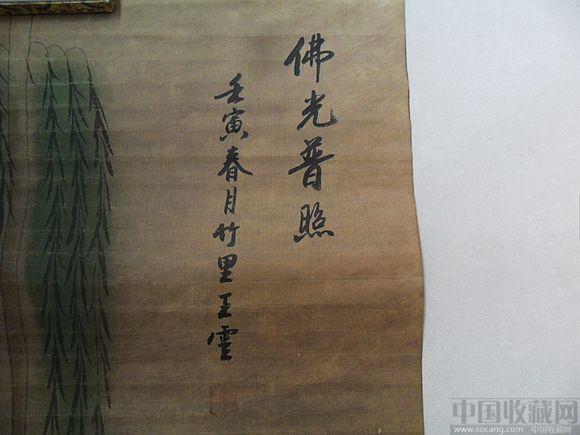 佛光普照
壬寅春月竹里王雲
中国收藏网
www.socang.com 中国收藏网